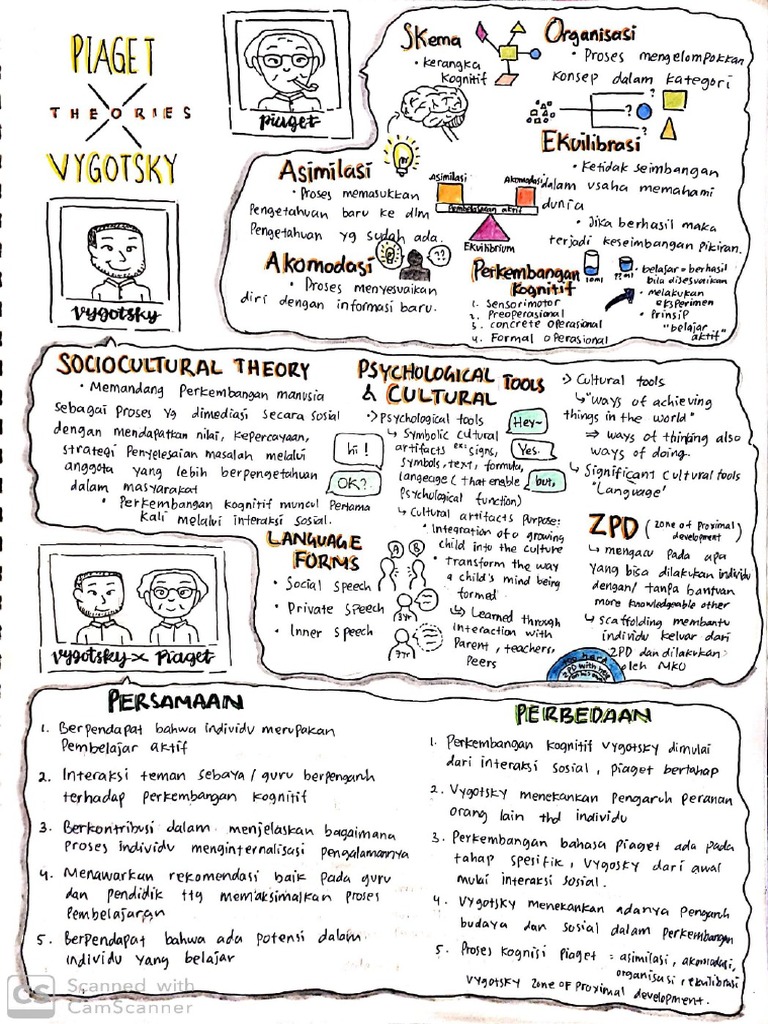 PIAGET
THEORIES
VYGOTSKY
Piaget
Vygotsky
Skema
• Kerangka
Kognitif
Organisasi
• Proses mengelompokkan
konsep dalam kategori
?
?
?
Ekuilibrasi
• Ketidak seimbangan
dalam usaha memahami
dunia
• Jika berhasil maka
terjadi keseimbangan pikiran.
Asimilasi
• Proses memasukkan
Pengetahuan baru ke dlm
Pengetahuan yg sudah ada.
Asimilasi
Akomodasi
Pembelajaran aktif
Ekuilibrium
Akomodasi
• Proses menyesuaikan
diri dengan informasi baru.
??
Perkembangan
Kognitif
1. Sensorimotor
2. Preoperasional
3. concrete operasional
4. Formal operasional
10ml
??ml
• belajar = berhasil
bila disesuaikan
• melakukan
eksperimen
• Prinsip
"belajar
aktif"
SOCIOCULTURAL THEORY
• Memandang Perkembangan manusia
sebagai Proses yg dimediasi secara sosial
dengan mendapatkan nilai, kepercayaan,
strategi Penyelesaian masalah melalui
anggota yang lebih berpengetahuan
dalam masyarakat
• Perkembangan kognitif muncul Pertama
Kali melalui interaksi sosial.
hi!
OK?
PSYCHOLOGICAL TOOLS
& CULTURAL
> Psychological tools
↳ Symbolic cultural
artifacts ex: signs,
symbols, text, formula,
langeage (that enable
Psychological function)
↳ Cultural artifacts Purpose:
• Integration of a growing
child into the culture
• transform the way
a child's mind being
formed
↳ Learned through
interaction with
Parent, teachers,
Peers
Hey~
Yes.
but,
> Cultural tools
↳ "ways of achieving
things in the world"
⇒ ways of thinking also
ways of doing.
↳ Significant Cultural tools
"Language"
ZPD (zone of Proximal
development)
↳ mengacu Pada apa
yang bisa dilakukan individu
dengan/ tanpa bantuan
more knowledgeable other
↳ scaffolding membantu
individu keluar dari
ZPD dan dilakukan
oleh MKO
LANGUAGE
FORMS
• Social speech
• Private speech
• Inner speech
A
B
3yr
7yr
Vygotsky x Piaget
PERSAMAAN
1. Berpendapat bahwa individu merupakan
Pembelajar aktif
2. Interaksi teman sebaya / guru berpengaruh
terhadap perkembangan kognitif
3. Berkontribusi dalam menjelaskan bagaimana
Proses individu menginternalisasi pengalamannya
4. Menawarkan rekomendasi baik pada guru
dan pendidik ttg memaksimalkan proses
Pembelajaran
5. Berpendapat bahwa ada potensi dalam
individu yang belajar
PERBEDAAN
1. Perkembangan kognitif Vygotsky dimulai
dari interaksi sosial, piaget bertahap
2. Vygotsky menekankan Pengaruh peranan
orang lain thd individu
3. Perkembangan bahasa Piaget ada pada
tahap spesifik, Vygosky dari awal
mulai interaksi sosial.
4. Vygotsky menekankan adanya Pengaruh
budaya dan sosial dalam perkembangan
5. Proses Kognisi Piaget = asimilasi, akomodasi,
organisasi, ekuilibrasi
Vygotsky zone of Proximal development.
CS Scanned with
CamScanner